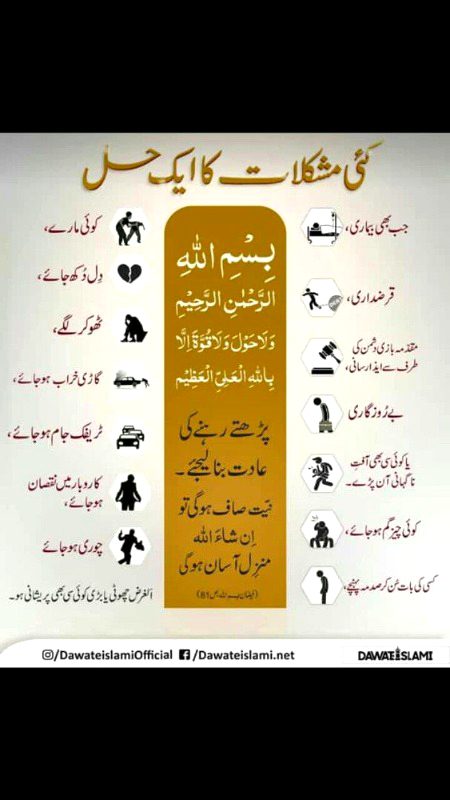 کئی مشکلات کا ایک حل
جب بھی بیماری،
قرضداری،
مقدمہ بازی دشمن کی
طرف سے ایذا رسانی،
بے رُوزگاری
یا کوئی سی بھی آفتِ
ناگہانی آن پڑے۔
کوئی چیز گم ہوجائے،
کسی کی بات سُن کر صدمہ پہنچے،
بِسْمِ اللهِ
الرَّحْمٰنِ الرَّحِيْمِ
وَلَا حَوْلَ وَلَا قُوَّةَ اِلَّا
بِاللهِ الْعَلِيِّ الْعَظِيْمِ
پڑھتے رہنے کی
عادت بنالیجئے۔
نیّت صاف ہوگی تو
اِنْ شَآءَ الله
منزِل آسان ہوگی
(فیضانِ بسم اللہ، ص 81)
کوئی مارے،
دِل دُکھ جائے،
ٹھوکر لگے،
گاڑی خراب ہوجائے،
ٹریفک جام ہوجائے،
کاروبار میں نقصان
ہوجائے،
چوری ہوجائے
الغرض چھوٹی یا بڑی کوئی سی بھی پریشانی ہو۔
/DawateislamiOfficial /Dawateislami.net
DAWATEISLAMI